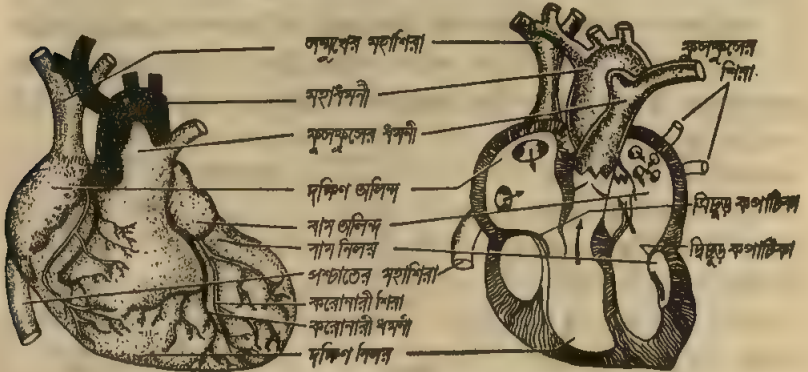 সম্মুখের মহাশিরা
মহাধমনী
ফুসফুসের ধমনী
দক্ষিণ অলিন্দ
বাম অলিন্দ
বাম নিলয়
পশ্চাতের মহাশিরা
করোনারী শিরা
করোনারী ধমনী
দক্ষিণ নিলয়
ফুসফুসের
শিরা
ত্রিচূড় কপাটিকা
দ্বিচূড় কপাটিকা